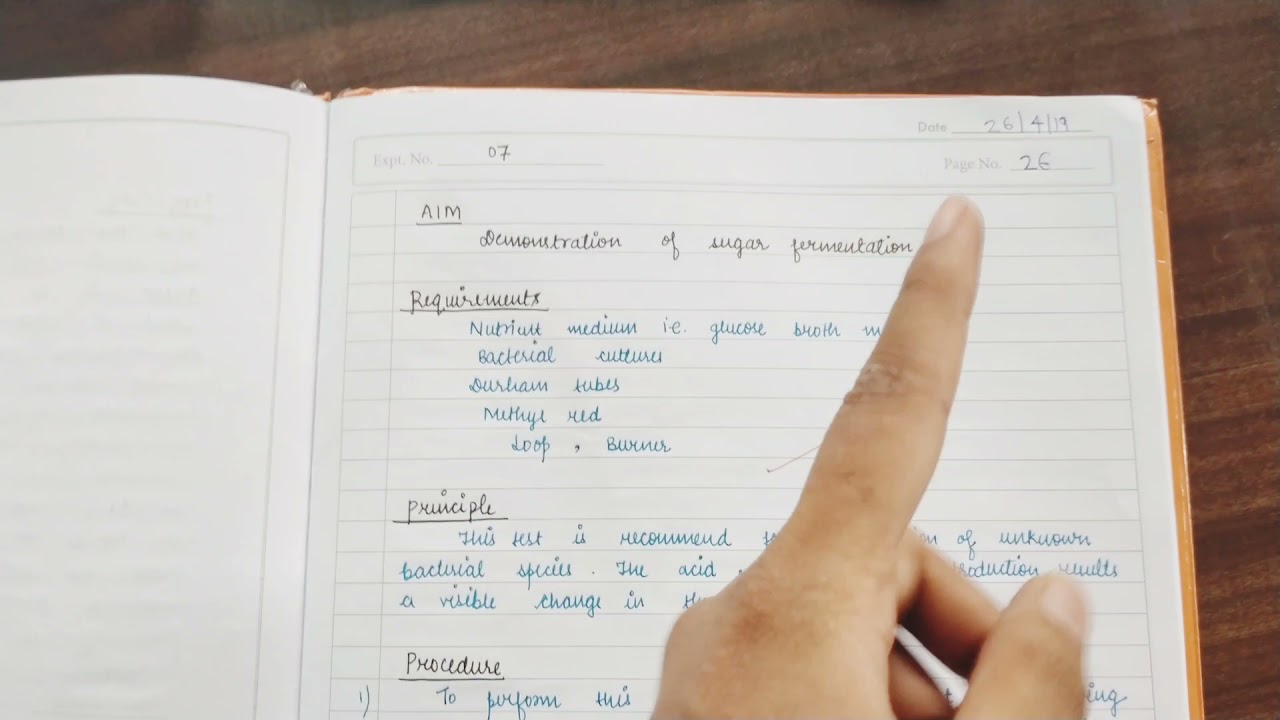 Date 26/4/19
Expt. No. 07
Page No. 26
AIM
Demonstration of sugar fermentation
Requirements
Nutrient medium i.e. glucose broth
Bacterial cultures
Durham tubes
Methyl red
Loop , Burner
Principle
This test is recommend of unknown
bacterial species. The acid production results
a visible change in
Procedure
1) To perform this